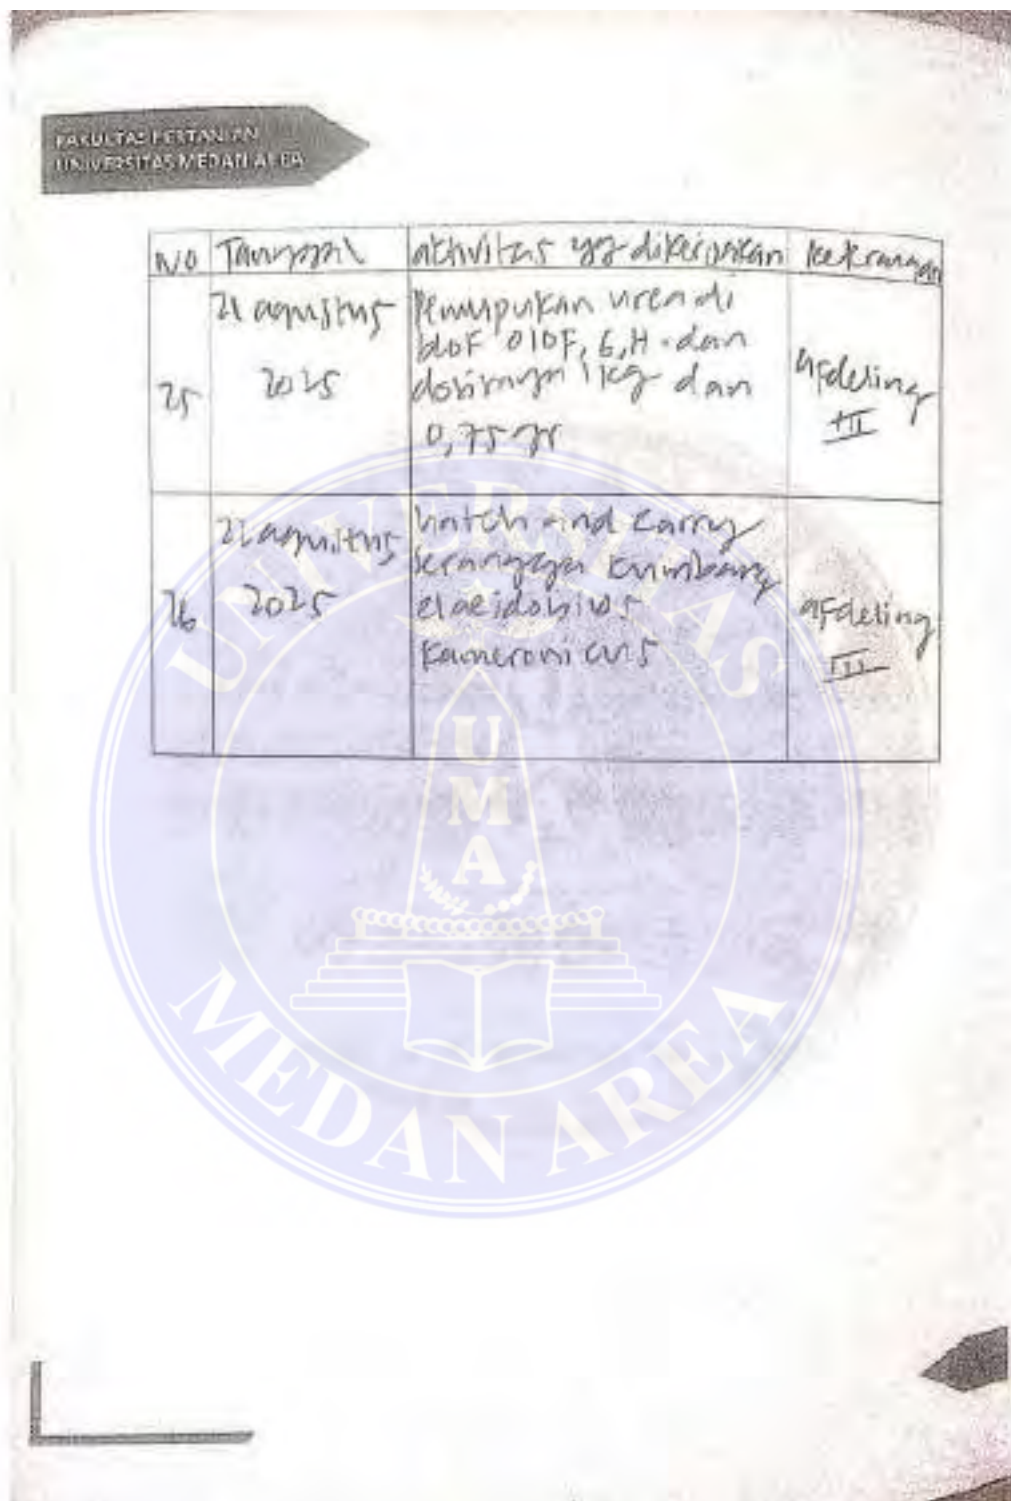 FAKULTAS PERTANIAN
UNIVERSITAS MEDAN AREA
NO Tanggal aktivitas yg dikerjakan keterangan
25 21 agustus 2025 Pemupukan urea di
blok 010F, G, H. dan
dosisnya 1 kg dan
0,75 gr
afdeling
III
26 2025 hatch and carry
kumbang
elaeidobius
kameronicus
afdeling
III
UNIVERSITAS
UMA
MEDAN AREA